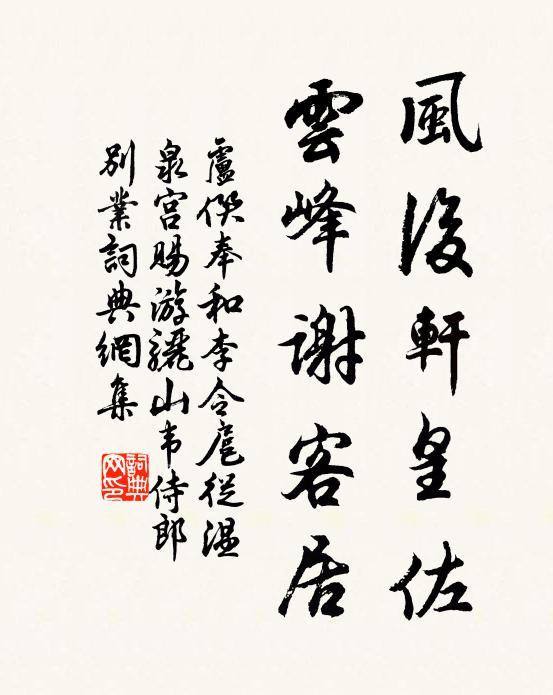 風後軒皇佐
雲峰謝客居
盧僎奉和李令扈從温
泉宮賜游驪山韦侍郎
別業詞典網集
詞典
网印